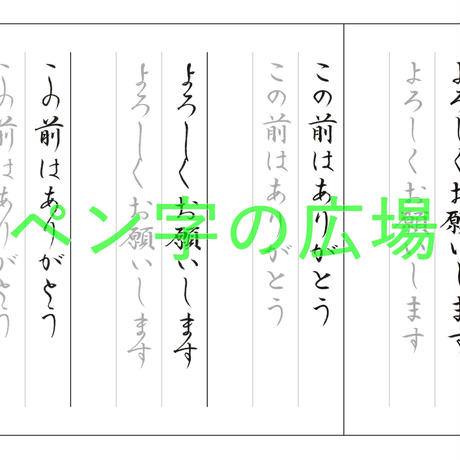 よろしくお願いします
よろしくお願いします
この前はありがとう
この前はありがとう
よろしくお願いします
よろしくお願いします
この前はありがとう
この前はありがとう
ペン字の広場